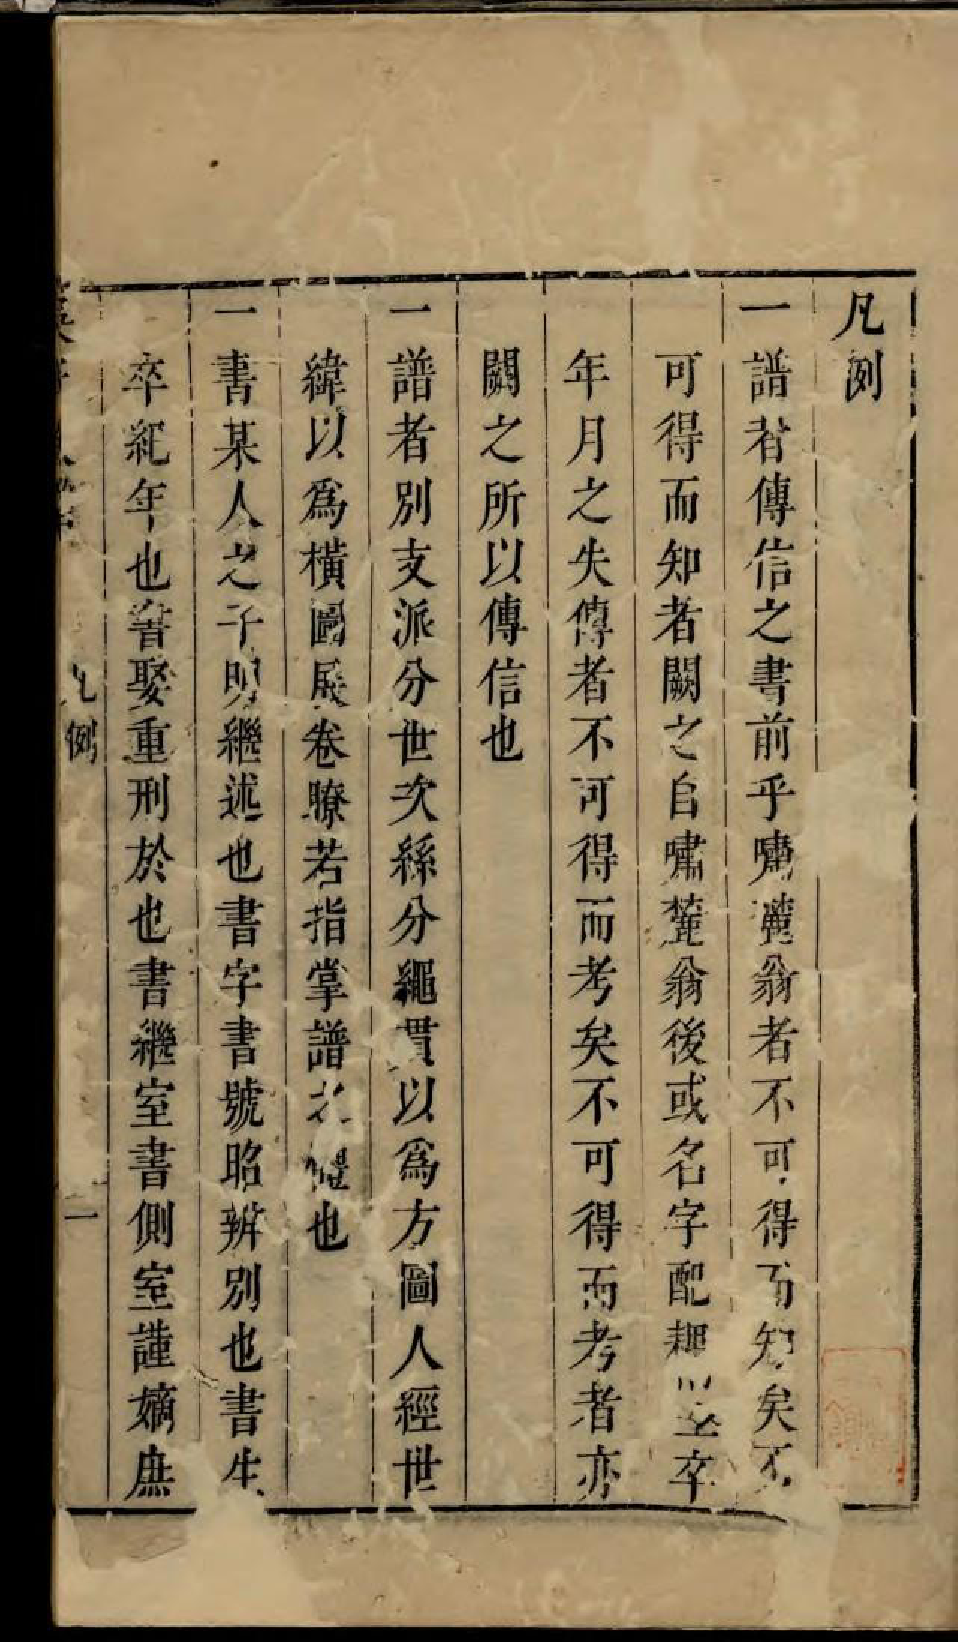 凡例
一譜者傳信之書前乎嘯麓翁者不可得而知矣不
可得而知者闕之自嘯麓翁後或名字配耦以至卒
年月之失傳者不可得而考矣不可得而考者亦
闕之所以傳信也
一譜者別支派分世次絲分繩貫以爲方圖人經世
緯以爲橫圖展卷瞭若指掌譜之體也
一書某人之子明繼述也書字書號昭辨別也書生
卒紀年也書娶重刑於也書繼室書側室謹嫡庶
凡例
一